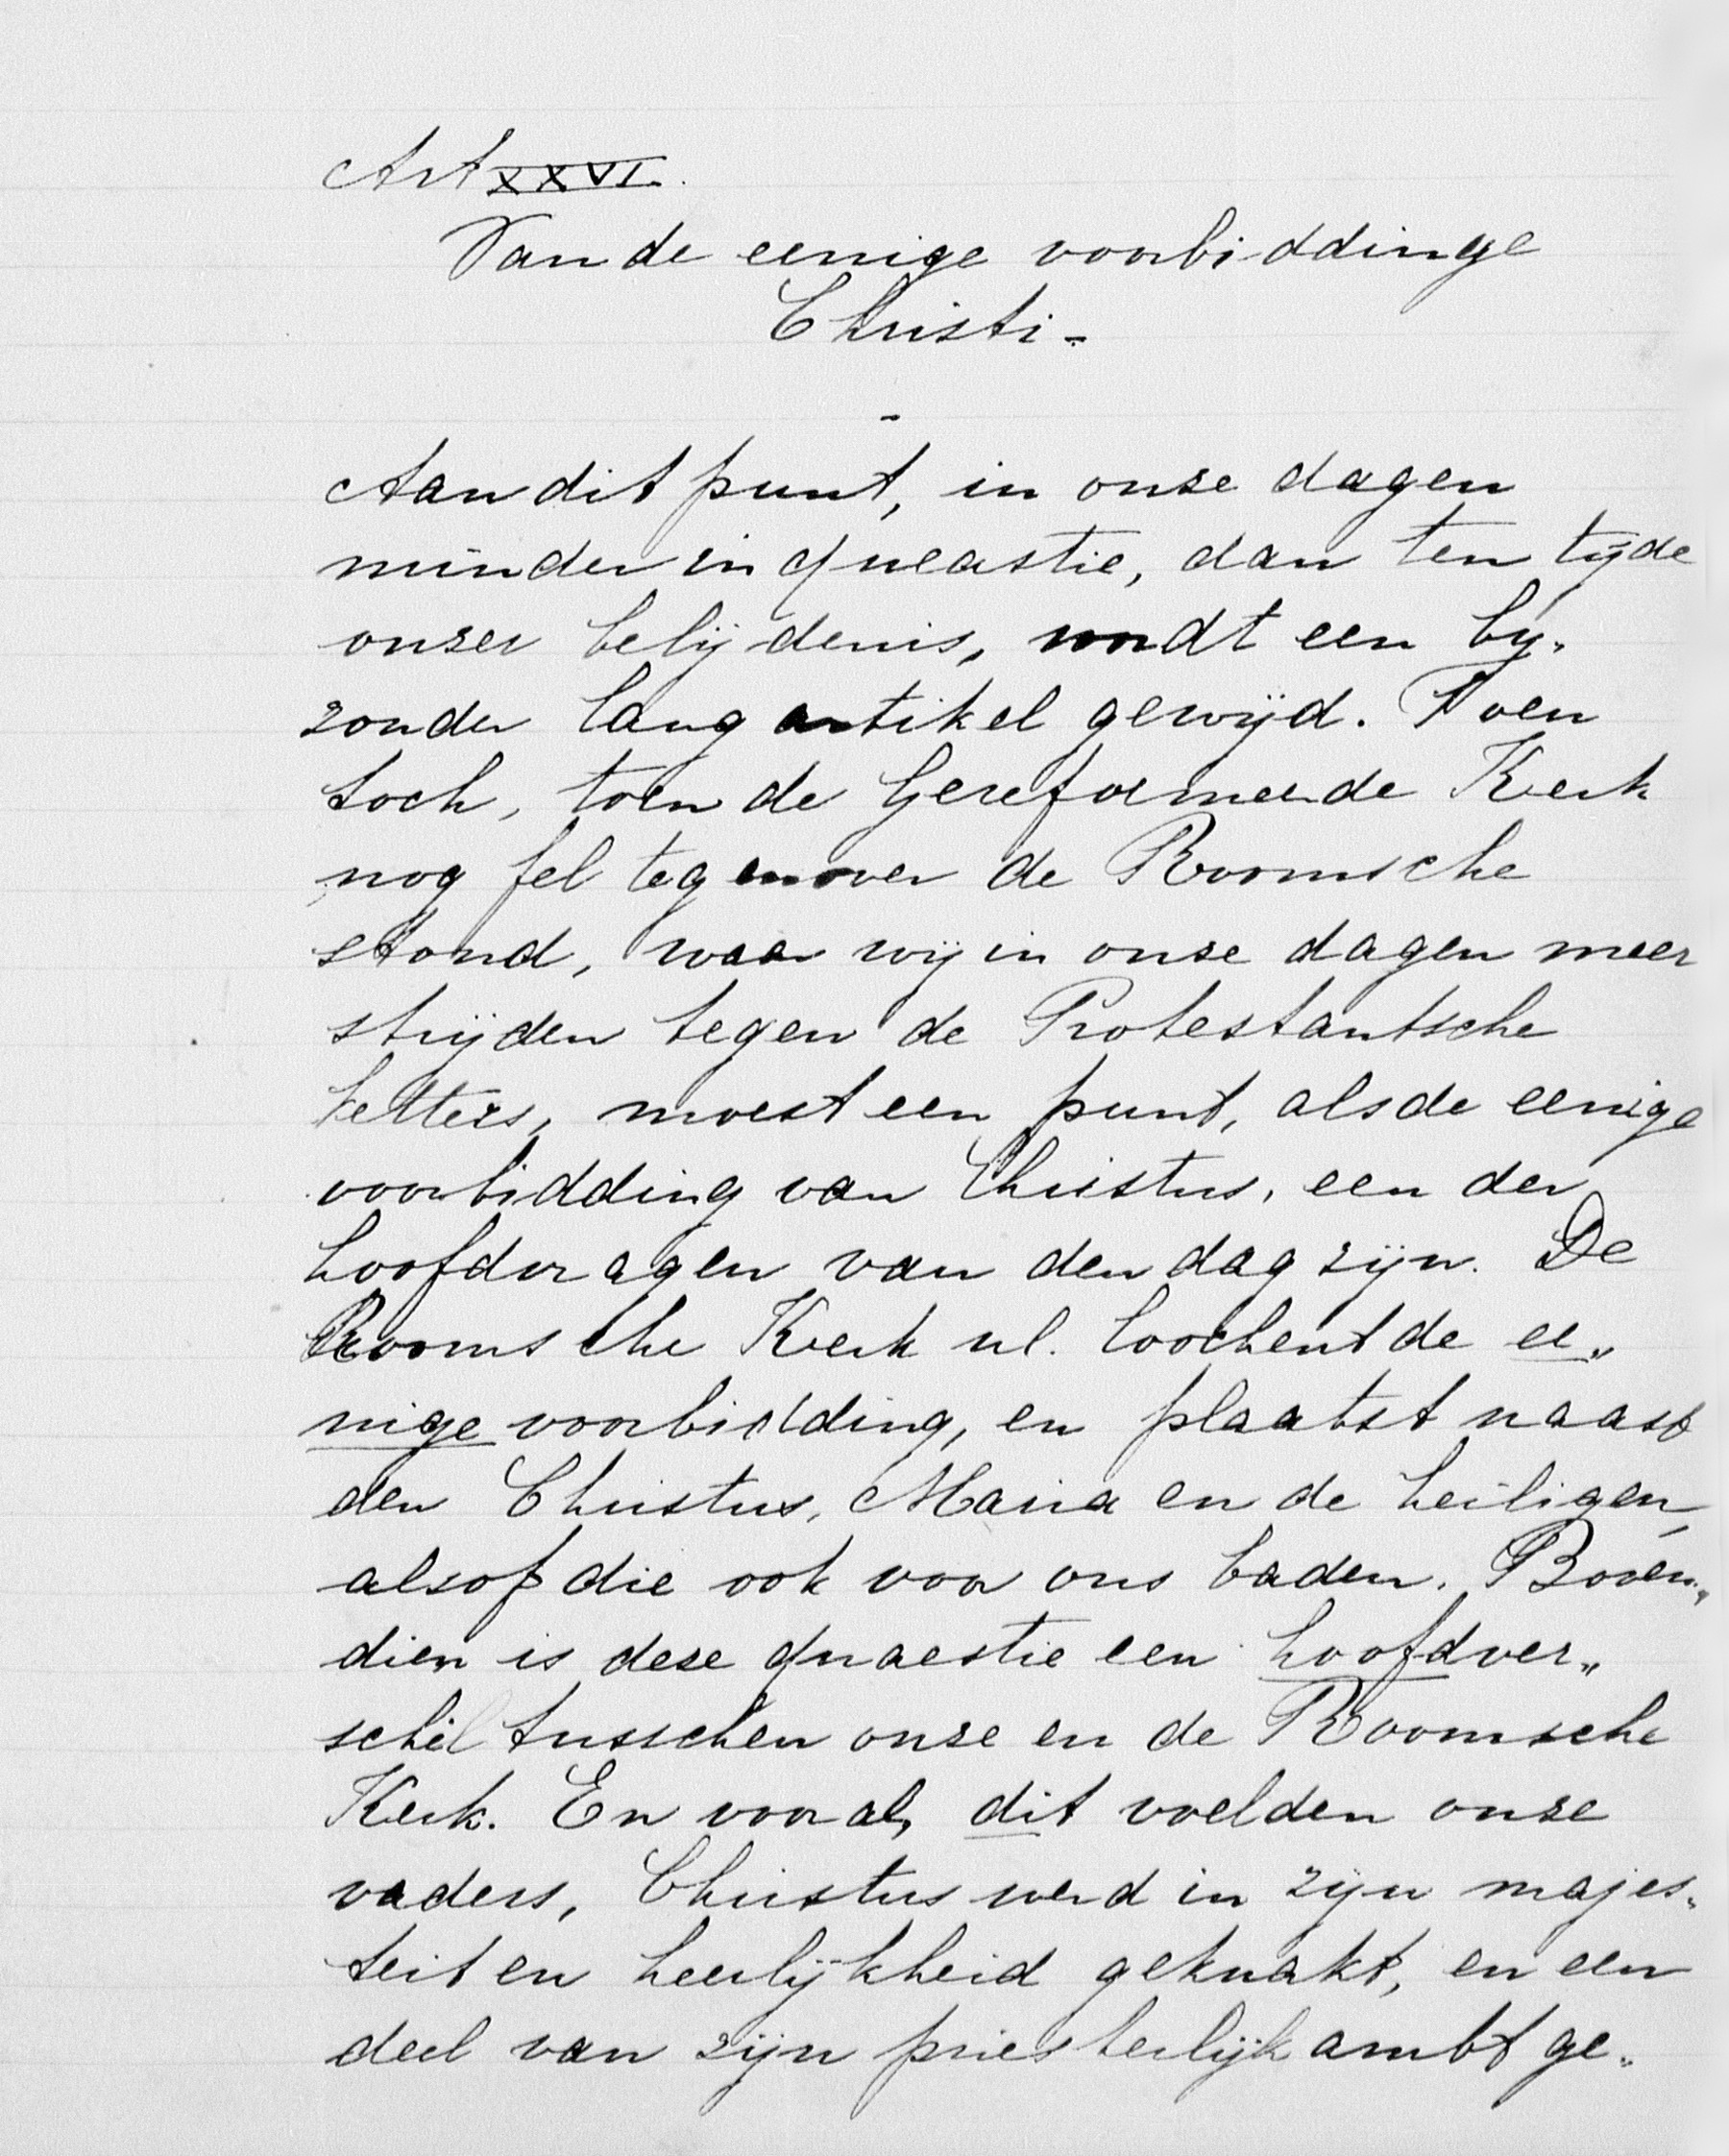 Art XXVI.
Van de eenige voorbiddinge
Christi.
Aan dit punt, in onze dagen
minder in queastie, dan ten tijde
onzer belijdenis, wordt een bij„
zonder lang artikel gewijd. Toen
toch, toen de Gereformeerde Kerk
nog fel tegenover de Roomsche
stond, waar wij in onze dagen meer
strijden tegen de Protestantsche
ketters, moest een punt, als de eenige
voorbidding van Christus, een der
hoofdvragen van den dag zijn. De
Roomsche Kerk nl. loochent de ee„
nige voorbidding, en plaatst naast
den Christus, Maria en de heiligen,
alsof die ook voor ons baden. Boven„
dien is deze quaestie een hoofdver„
schil tusschen onze en de Roomsche
Kerk. En vooral, dit voelden onze
vaders, Christus werd in zijn majes„
teit en heerlijkheid geknakt, en een
deel van zijn priesterlijk ambt ge„